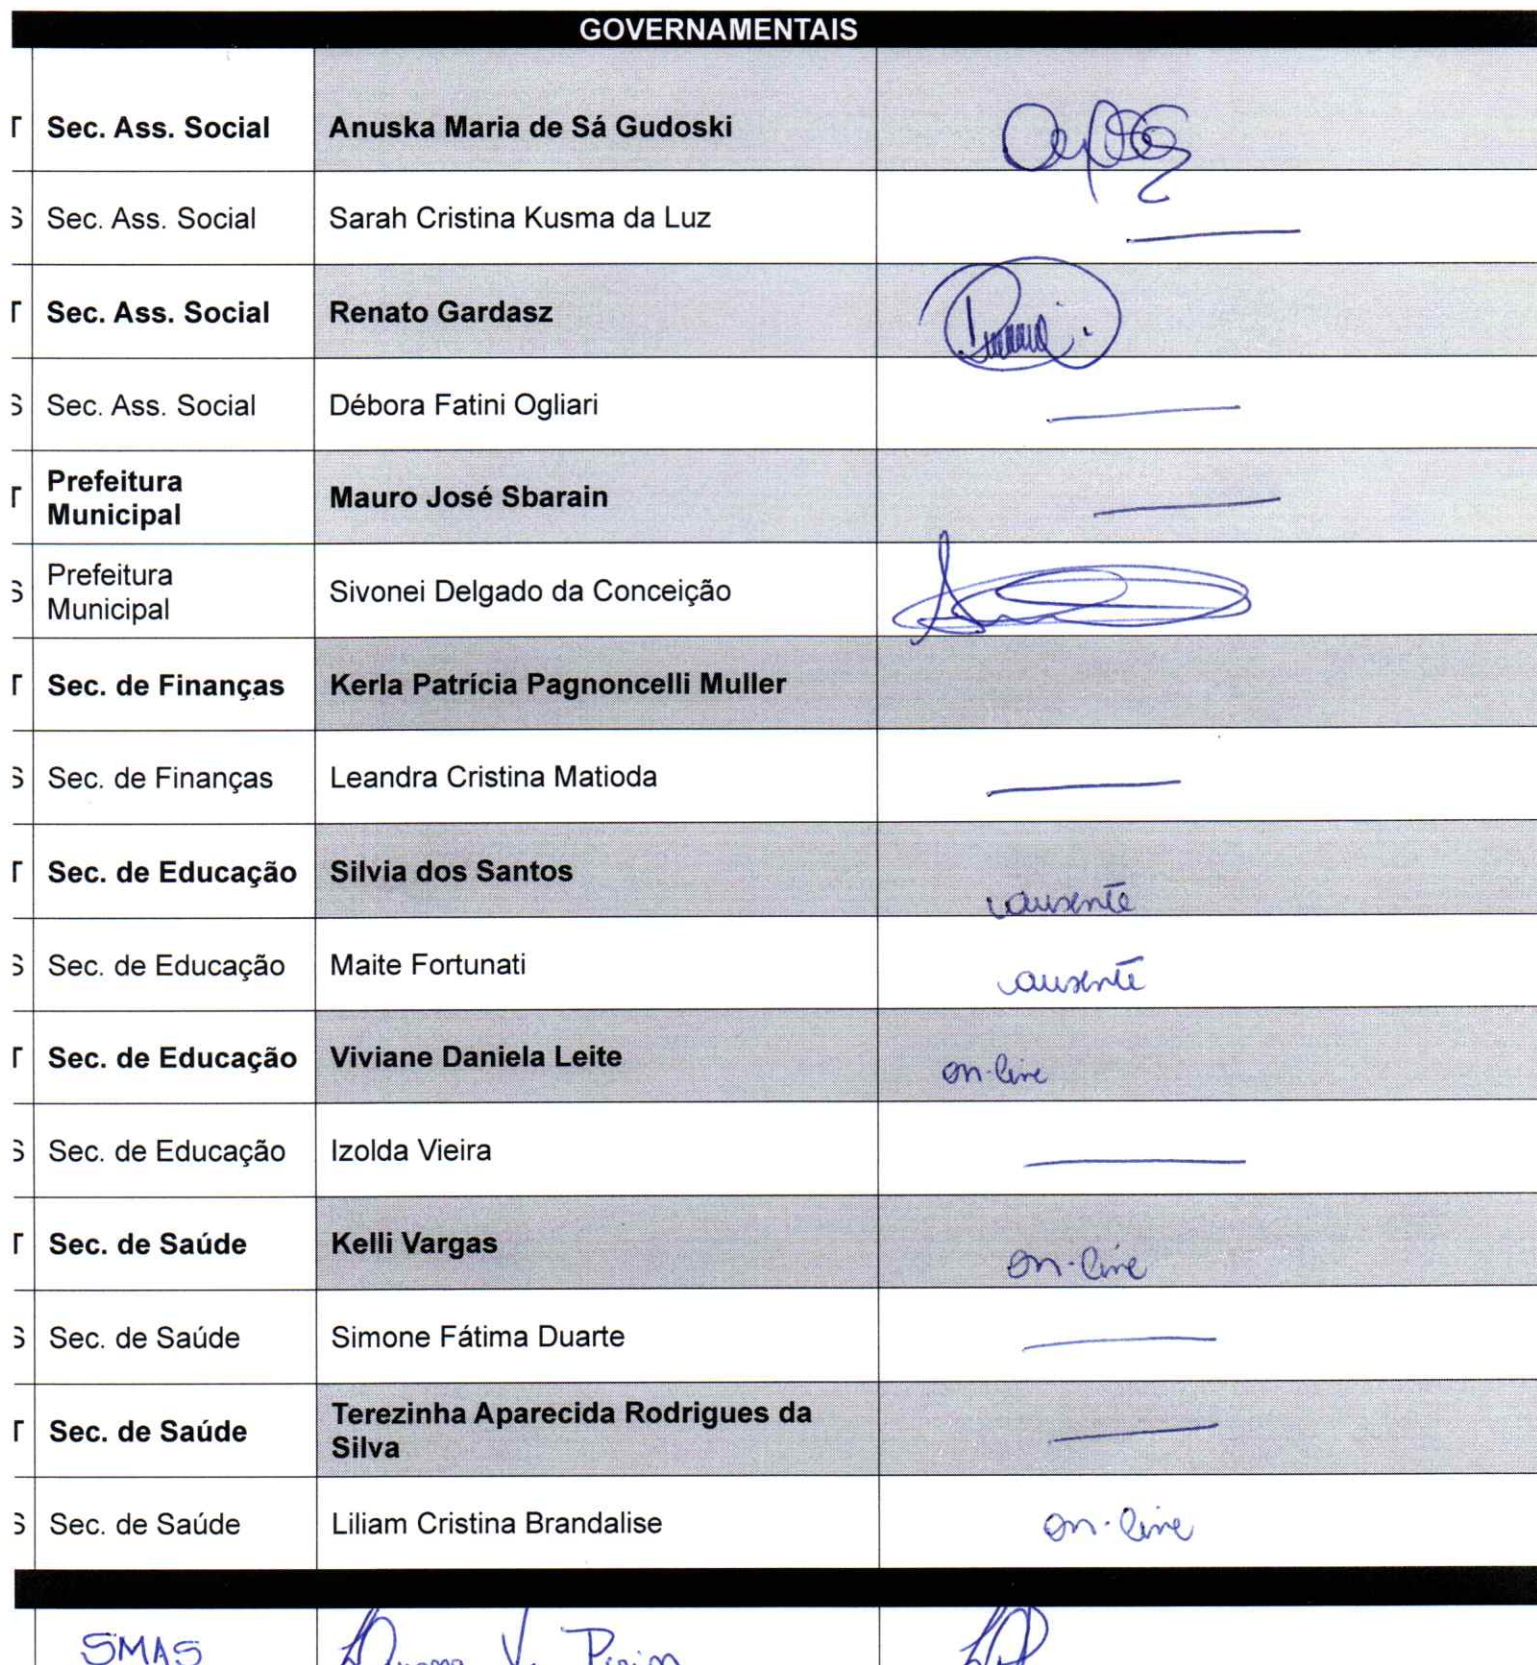 GOVERNAMENTAIS
T Sec. Ass. Social Anuska Maria de Sá Gudoski
S Sec. Ass. Social Sarah Cristina Kusma da Luz
T Sec. Ass. Social Renato Gardasz
S Sec. Ass. Social Débora Fatini Ogliari
T Prefeitura
Municipal Mauro José Sbarain
S Prefeitura
Municipal Sivonei Delgado da Conceição
T Sec. de Finanças Kerla Patrícia Pagnoncelli Muller
S Sec. de Finanças Leandra Cristina Matioda
T Sec. de Educação Silvia dos Santos ausente
S Sec. de Educação Maite Fortunati ausente
T Sec. de Educação Viviane Daniela Leite on-line
S Sec. de Educação Izolda Vieira
T Sec. de Saúde Kelli Vargas on-line
S Sec. de Saúde Simone Fátima Duarte
T Sec. de Saúde Terezinha Aparecida Rodrigues da
Silva
S Sec. de Saúde Liliam Cristina Brandalise on-line
SMAS